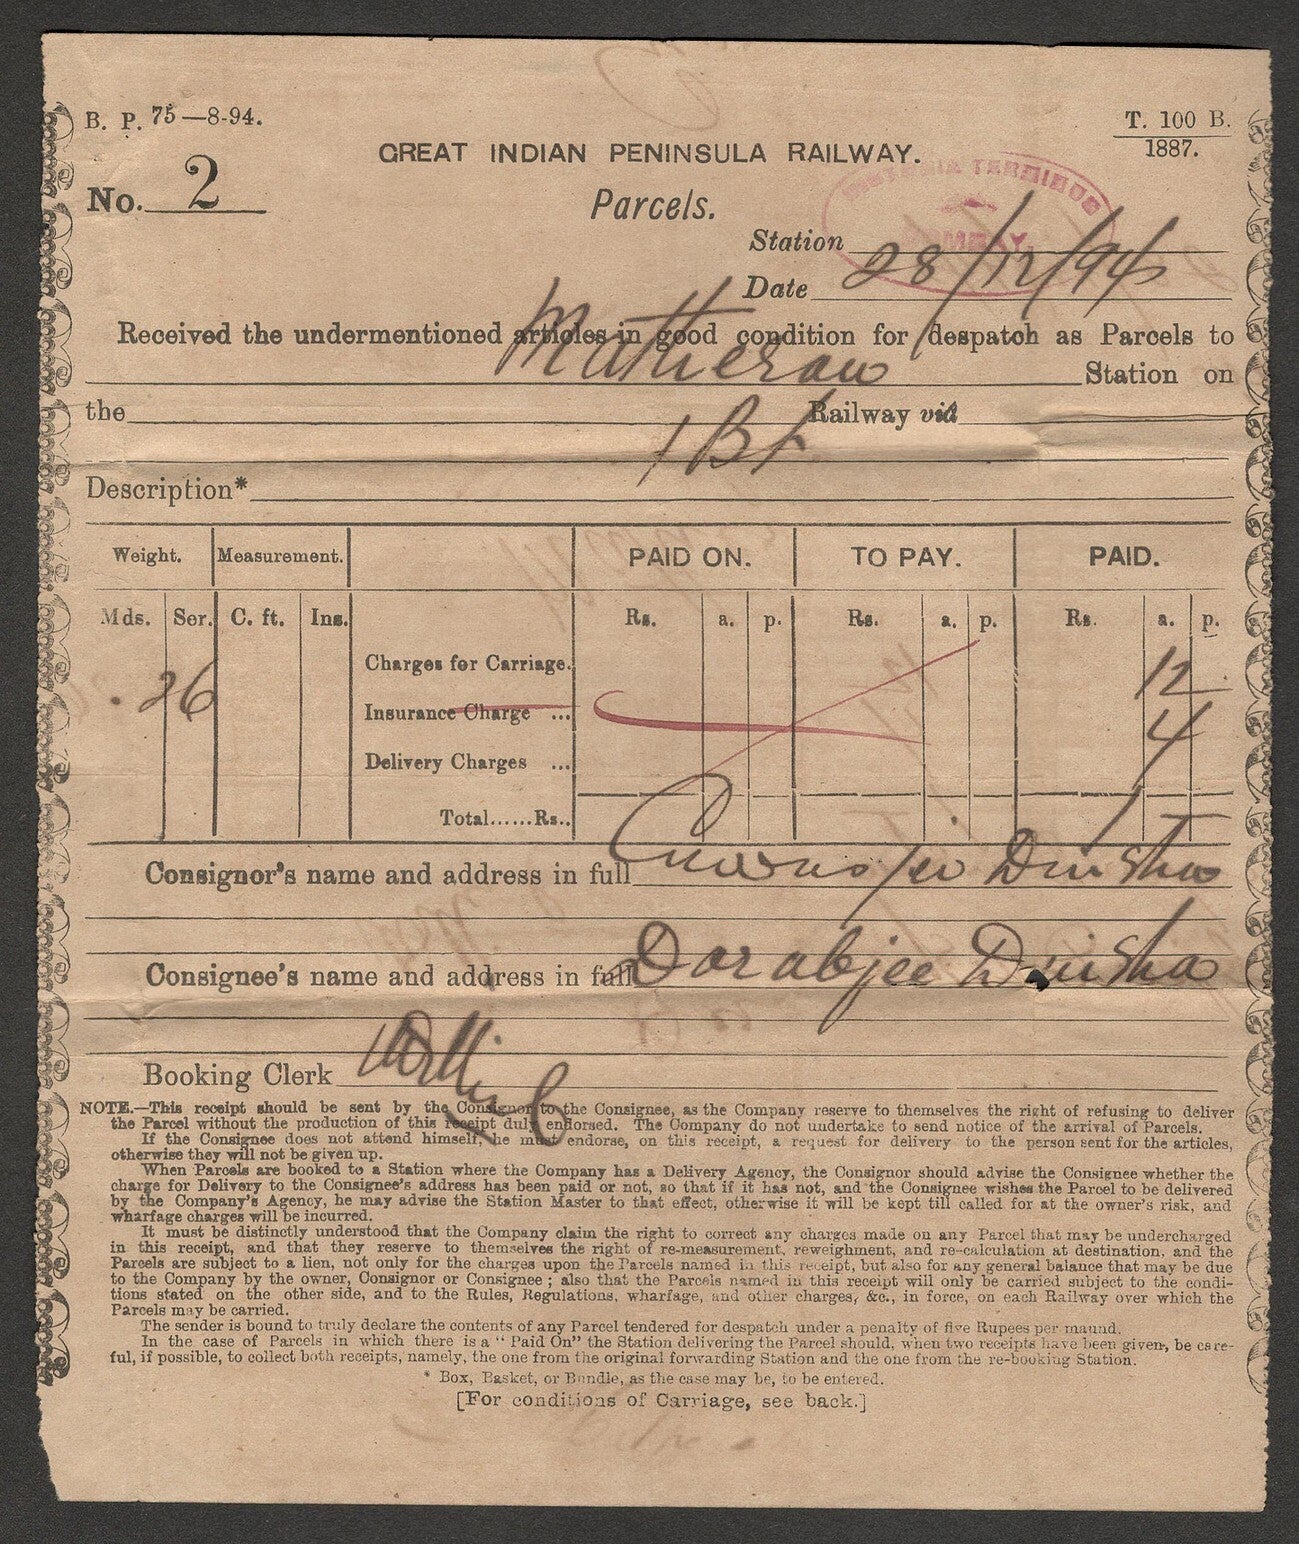 B. P. 75—8-94.
T. 100 B.
1887.
GREAT INDIAN PENINSULA RAILWAY.
No. 2
Parcels.
VICTORIA TERMINUS
BOMBAY.
Station
Date 28/12/94
Received the undermentioned articles in good condition for despatch as Parcels to
Matheran Station on
the Railway viâ
1 Bx
Description*
Weight. Measurement. PAID ON. TO PAY. PAID.
Mds. Ser. C. ft. Ins. Rs. a. p. Rs. a. p. Rs. a. p.
Charges for Carriage. 12
. 26
Insurance Charge ... 4
Delivery Charges ...
Total......Rs.. 1
Consignor's name and address in full Dinsha
Consignee's name and address in full Dorabjee Dinsha
Booking Clerk
NOTE.—This receipt should be sent by the Consignor to the Consignee, as the Company reserve to themselves the right of refusing to deliver
the Parcel without the production of this receipt duly endorsed. The Company do not undertake to send notice of the arrival of Parcels.
If the Consignee does not attend himself, he must endorse, on this receipt, a request for delivery to the person sent for the articles,
otherwise they will not be given up.
When Parcels are booked to a Station where the Company has a Delivery Agency, the Consignor should advise the Consignee whether the
charge for Delivery to the Consignee's address has been paid or not, so that if it has not, and the Consignee wishes the Parcel to be delivered
by the Company's Agency, he may advise the Station Master to that effect, otherwise it will be kept till called for at the owner's risk, and
wharfage charges will be incurred.
It must be distinctly understood that the Company claim the right to correct any charges made on any Parcel that may be undercharged
in this receipt, and that they reserve to themselves the right of re-measurement, reweighment, and re-calculation at destination, and the
Parcels are subject to a lien, not only for the charges upon the Parcels named in this receipt, but also for any general balance that may be due
to the Company by the owner, Consignor or Consignee ; also that the Parcels named in this receipt will only be carried subject to the condi-
tions stated on the other side, and to the Rules, Regulations, wharfage, and other charges, &c., in force, on each Railway over which the
Parcels may be carried.
The sender is bound to truly declare the contents of any Parcel tendered for despatch under a penalty of five Rupees per maund.
In the case of Parcels in which there is a " Paid On" the Station delivering the Parcel should, when two receipts have been given, be care-
ful, if possible, to collect both receipts, namely, the one from the original forwarding Station and the one from the re-booking Station.
* Box, Basket, or Bundle, as the case may be, to be entered.
[For conditions of Carriage, see back.]